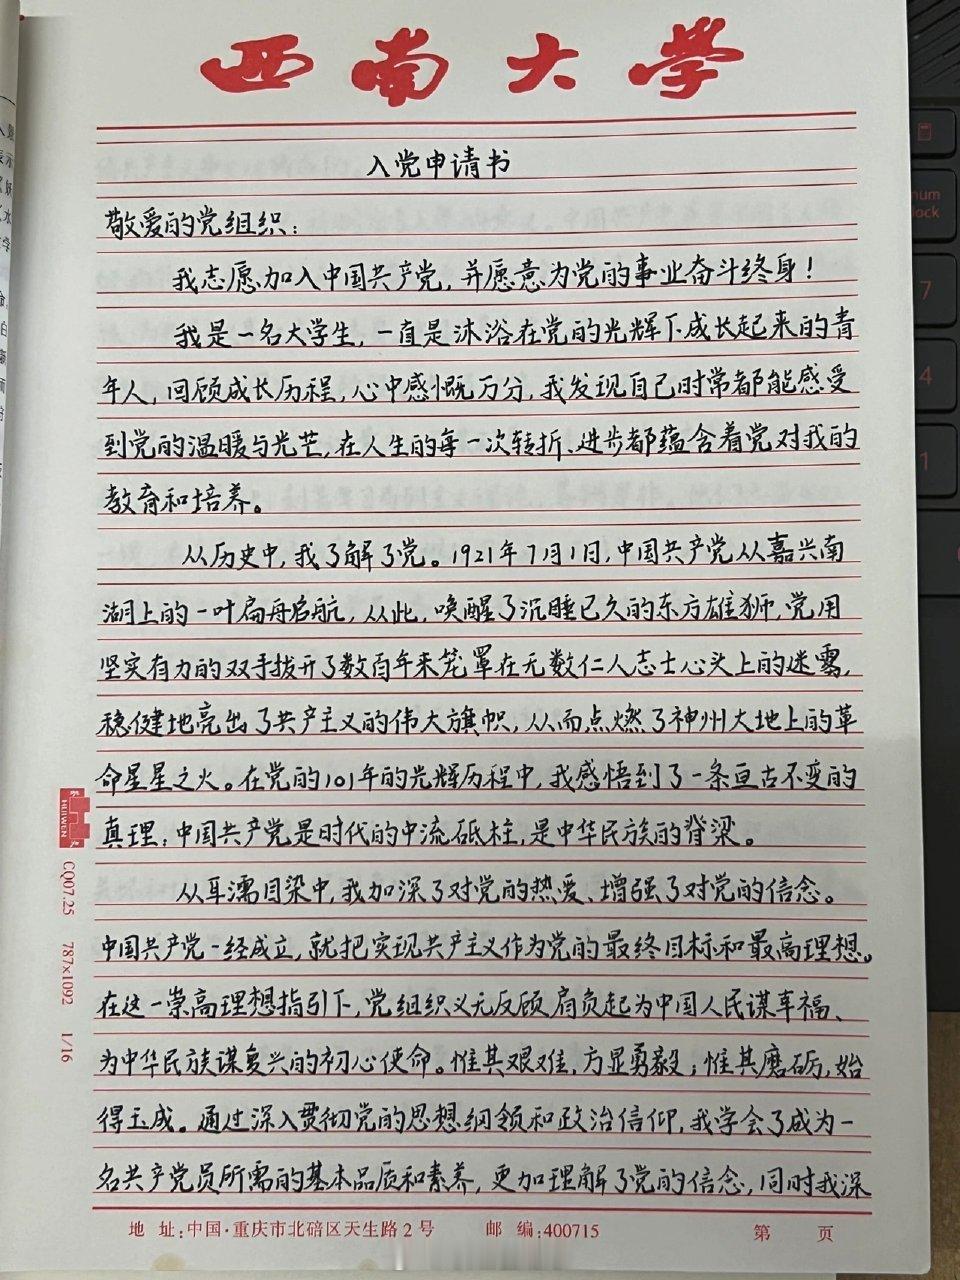 西南大学
入党申请书
敬爱的党组织：
我志愿加入中国共产党，并愿意为党的事业奋斗终身！
我是一名大学生，一直是沐浴在党的光辉下成长起来的青
年人，回顾成长历程，心中感慨万分，我发现自己时常都能感受
到党的温暖与光芒，在人生的每一次转折、进步都蕴含着党对我的
教育和培养。
从历史中，我了解了党。1921年7月1日，中国共产党从嘉兴南
湖上的一叶扁舟启航，从此，唤醒了沉睡已久的东方雄狮，党用
坚实有力的双手拨开了数百年来笼罩在无数仁人志士心头上的迷雾，
稳健地亮出了共产主义的伟大旗帜，从而点燃了神州大地上的革
命星星之火。在党的101年的光辉历程中，我感悟到了一条亘古不变的
真理：中国共产党是时代的中流砥柱，是中华民族的脊梁。
从耳濡目染中，我加深了对党的热爱、增强了对党的信念。
中国共产党一经成立，就把实现共产主义作为党的最终目标和最高理想。
在这一崇高理想指引下，党组织义无反顾肩负起为中国人民谋幸福、
为中华民族谋复兴的初心使命。惟其艰难，方显勇毅；惟其磨砺，始
得玉成。通过深入贯彻党的思想纲领和政治信仰，我学会了成为一
名共产党员所需的基本品质和素养，更加理解了党的信念，同时我深
地 址：中国·重庆市北碚区天生路2号 邮 编：400715 第 页
HUIWEN
CQ07.25 787×1092 1/16
num
lock
7
4
1